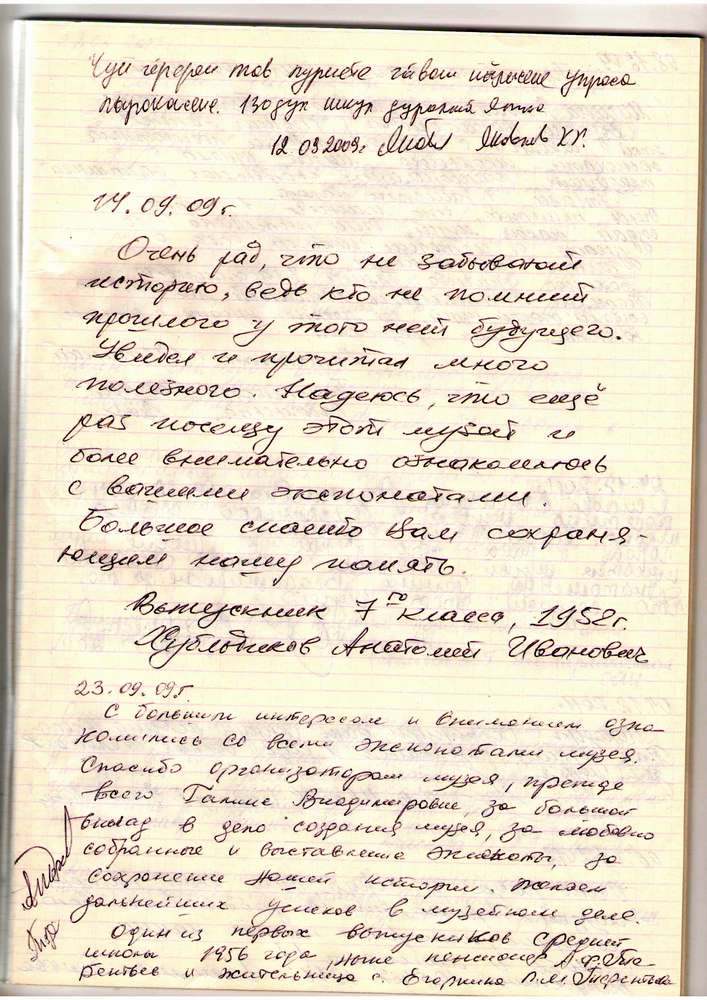 12 09 2009г.
14.09.09г.
Очень рад, что не забывают
историю, ведь кто не помнит
прошлого у того нет будущего.
Увидел и прочитал много
полезного. Надеюсь, что ещё
раз посещу этот музей и
более внимательно ознакомлюсь
с вашими экспонатами.
Большое спасибо Вам сохраня-
ющим нашу память.
Выпускник 7го класса, 1952г.
Анатолий Иванович
23.09.09г
С большим интересом и вниманием озна-
комились со всеми экспонатами музея.
Спасибо организаторам музея, прежде
всего Галине Владимировне, за большой
вклад в дело создания музея, за любовно
собранные и выставленные экспонаты, за
сохранение нашей истории. Желаем
дальнейших успехов в музейном деле.
Один из первых выпускников средней
школы 1956 года, ныне пенсионер А.Ф.
и жительница с. Егоркино